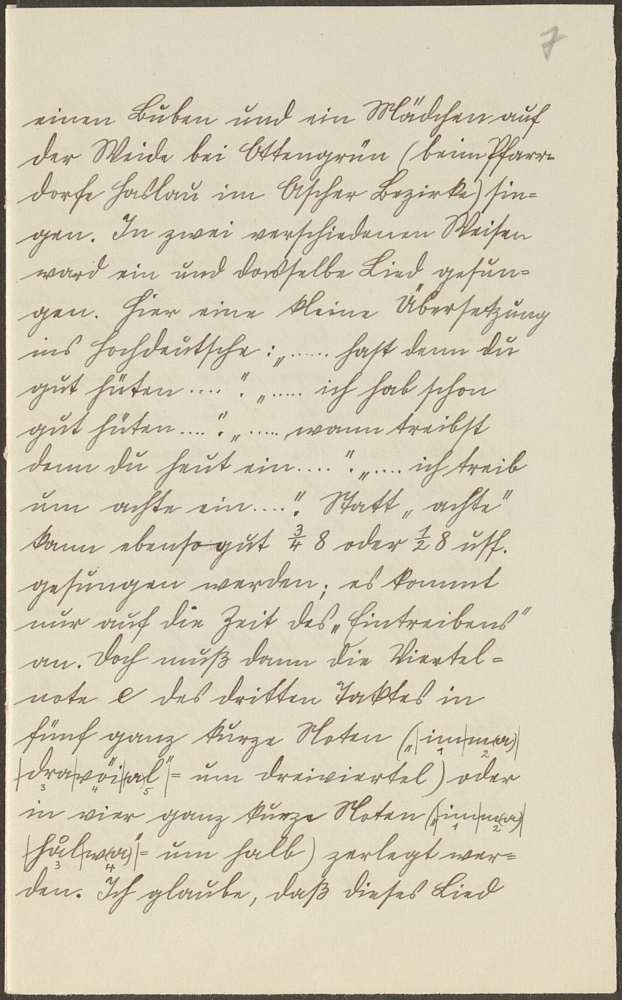 7
einen Buben und ein Mädchen auf
der Weide bei Ottengrün (beim Pfarr-
dorfe Haslau im Ascher Bezirke) sin-
gen. In zwei verschiedenen Weisen
ward ein und dasselbe Lied gesun-
gen. Hier eine kleine Übersetzung
ins Hochdeutsche: „...... hast denn du
gut hüten ....". „..... ich hab schon
gut hüten ....". „..... wann treibst
denn du heut ein ....". „.... ich treib
um achte ein ....". Statt „achte"
kann ebenso gut 3/4 8 oder 1/2 8 usf.
gesungen werden; es kommt
nur auf die Zeit des „Eintreibens"
an. Doch muß dann die Viertel-
note e des dritten Taktes in
fünf ganz kurze Noten („|im|
|dra|vöi|al|"= um dreiviertel) oder
in vier ganz kurze Noten („|im|
|hål| = um halb) zerlegt wer-
den. Ich glaube, daß dieses Lied